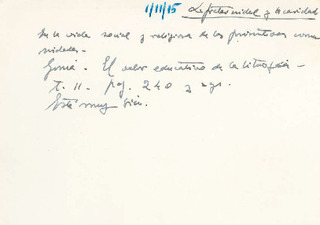 1/11/15 La fraternidad y la caridad
En la vida social y religiosa de las primitivas comu
nidades -
Gomá. El valor educativo de la liturgia -
t. II. pag. 240 y sgs.
Está muy bien.